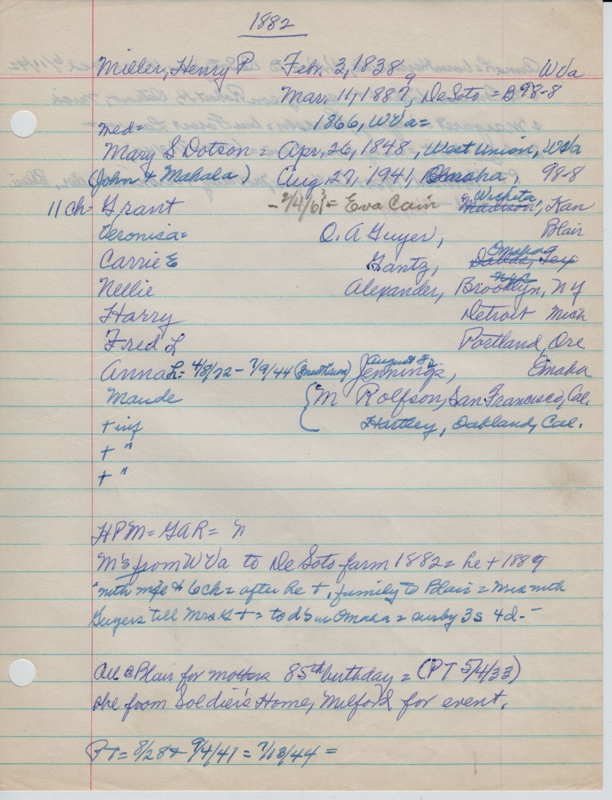 1882
Miller, Henry P. Feb. 3, 1838 WVa
Mar. 11, 1889, DeSoto = B 98-8
med= 1866, WVa=
Mary S Dotson = Apr. 26, 1848, West Union, WVa
(John + Mahala) Aug. 27, 1941 Omaha, 98-8
11 ch Grant = Eva Cain Wichita, Kan
Veronica= O. A Guyer, Blair
Carrie E Gantz, Omaha Dallas, Tex
Nellie Alexander, NYC Brooklyn, NY
Harry Detroit Mich
Fred L Portland, Ore
Anna L: 4/8/72 - 7/9/44 Jennings, August 8, Omaha
Maude { M Rolfson, San Francisco, Cal.
+ inf Hartley, Oakland, Cal.
+ "
+ "
HPM = GAR =
M's from WVa to De Soto farm 1882 = he + 1889
with wife + 6 ch = after he +, family to Blair = Mrs M with
Guyers till Mrs G + = to d's in Omaha = surby 3s 4d -
All @ Blair for mothers 85th birthday = (PT 5/4/33)
she from Soldier's Home, Milford for event.
PT = 8/28 + 9/4/41 = 7/13/44 =